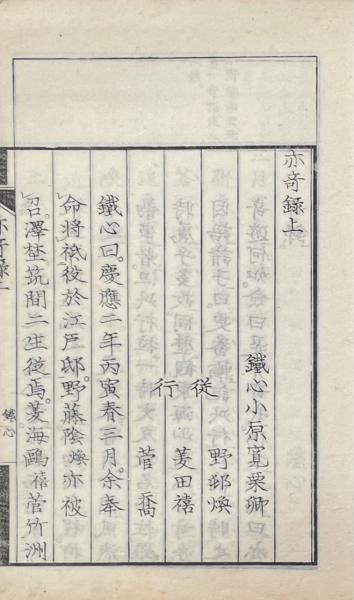 亦奇錄上
鐵心小原寬栗卿
野邨煥
從行
菱田禧
菅喬
鐵心曰。慶應二年丙寅春三月。余奉
命將祗役於江戶邸。野藤陰煥亦被
召。澤埜筑間二生從焉。菱海鷗禧菅竹洲
亦奇錄上
鐵心